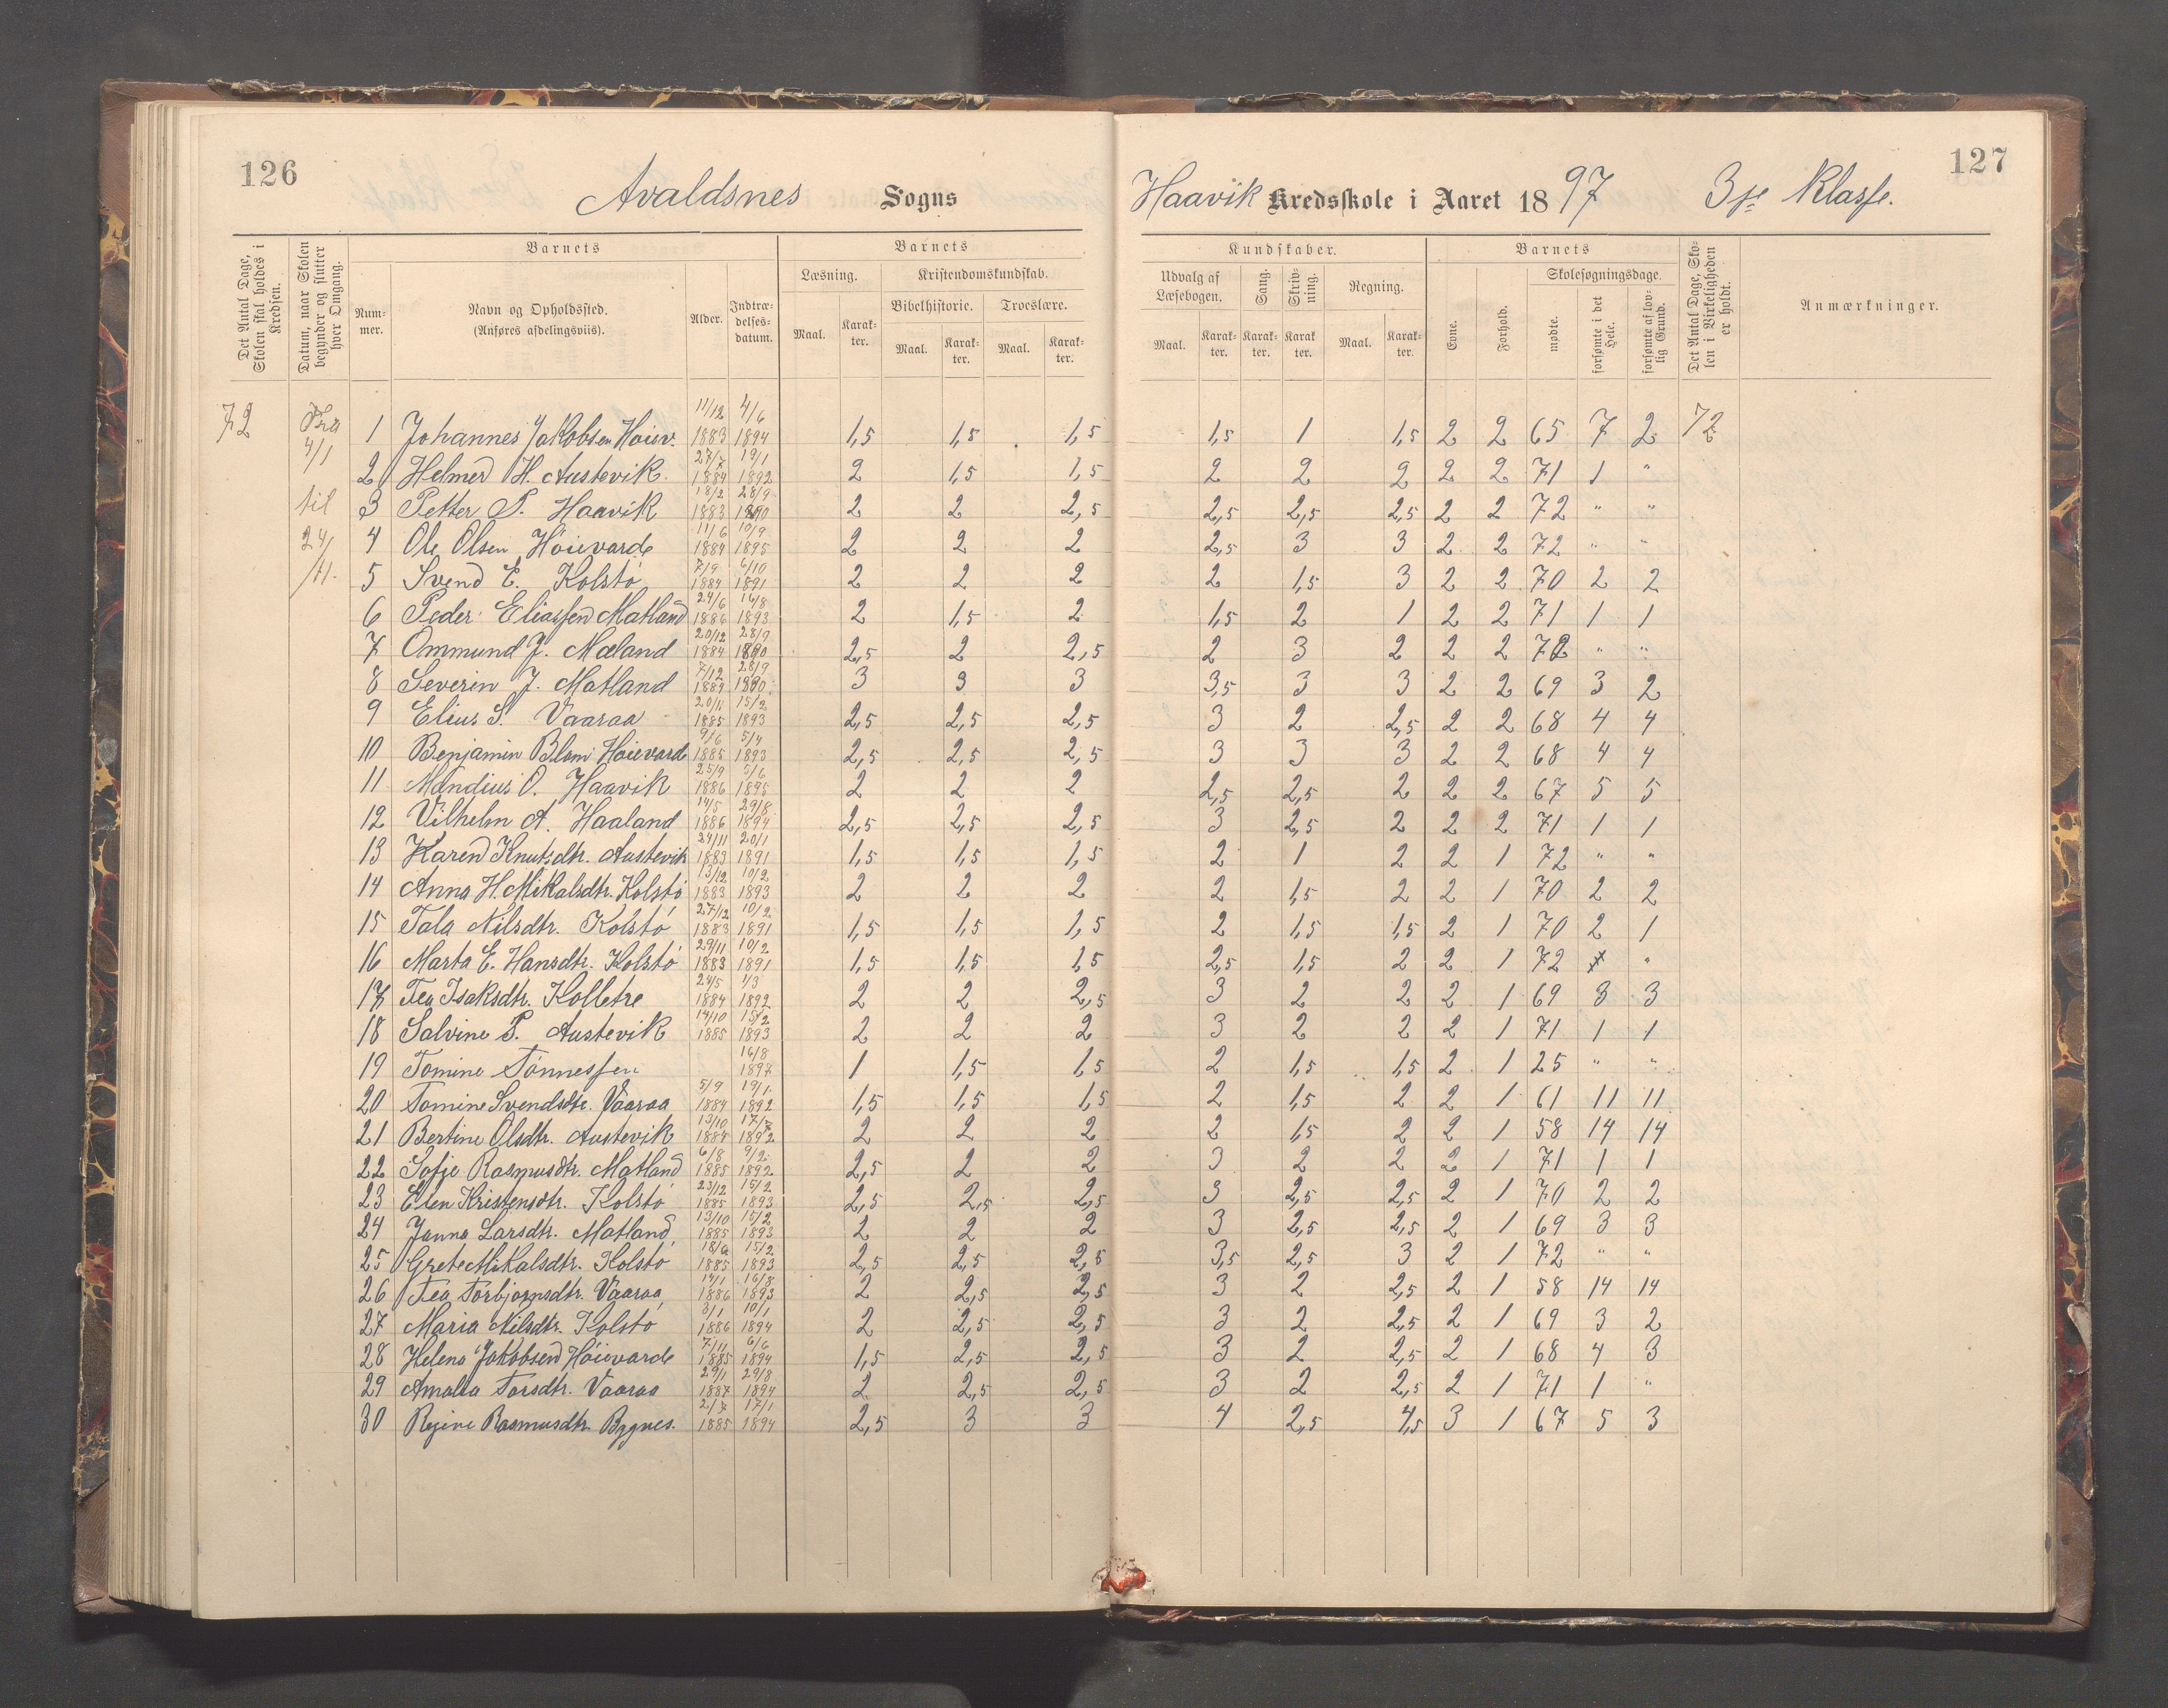 126
Avaldsnes Sogns
Haavik Kredsskole i Aaret 1897 3je Klasse.
127
Det Antal Dage, Skolen skal holdes i Kredsen.
Datum, naar Skolen begynder og slutter hver Omgang.
Barnets
Num-mer.
Navn og Opholdssted.
(Anføres afdelingsviis).
Alder.
Indtræ-delses-datum.
Barnets
Læsning.
Kristendomskundskab.
Bibelhistorie.
Troeslære.
Maal. Karak-ter. Maal. Karak-ter. Maal. Karak-ter.
Kundskaber.
Udvalg af Læsebogen.
Sang.
Skriv-ning.
Regning.
Maal. Karak-ter. Karak-ter. Karak ter. Maal. Karak-ter.
Barnets
Evne.
Forhold.
Skolesøgningsdage.
mødte.
forsømte i det Hele.
forsømte af lov-lig Grund.
Det Antal Dage, Sko-len i Virkeligheden er holdt.
Anmærkninger.
72 Fra 4/1 til 24/11.
1 Johannes Jakobsen Høiev. 11/12 1883 4/6 1894 1,5 1,5 1,5 1,5 1 1,5 2 2 65 7 2 72
2 Helmer H. Austevik 27/7 1884 19/1 1892 2 1,5 1,5 2 2 2 2 2 71 1 "
3 Petter P. Haavik 18/2 1883 28/9 1890 2 2 2,5 2,5 2,5 2,5 2 2 72 " "
4 Ole Olsen Høievarde 11/6 1884 10/9 1895 2 2 2 2,5 3 3 2 2 72 " "
5 Svend E. Kolstø 7/9 1884 6/10 1891 2 2 2 2 1,5 3 2 2 70 2 2
6 Peder Eliassen Matland 24/6 1886 16/8 1893 2 1,5 2 1,5 2 1 2 2 71 1 1
7 Ommund J. Mæland 20/12 1884 28/9 1890 2,5 2 2,5 2 3 2 2 2 72 " "
8 Severin J. Matland 7/12 1884 28/9 1890 3 3 3 3,5 3 3 2 2 69 3 2
9 Elius S. Vaaraa 20/11 1885 15/2 1893 2,5 2,5 2,5 3 2 2,5 2 2 68 4 4
10 Benjamin Blom Høievarde 9/6 1885 5/4 1893 2,5 2,5 2,5 3 3 3 2 2 68 4 4
11 Mandius O. Haavik 25/9 1886 5/6 1895 2 2 2 2,5 2,5 2 2 2 67 5 5
12 Vilhelm A. Haaland 14/5 1886 29/8 1894 2,5 2,5 2,5 3 2,5 2 2 2 71 1 1
13 Karen Knutsdtr. Austevik 24/11 1883 20/1 1891 1,5 1,5 1,5 2 1 2 2 1 72 " "
14 Anna H. Mikalsdtr. Kolstø 13/12 1883 10/2 1893 2 2 2 2 1,5 2 2 1 70 2 2
15 Tala Nilsdtr. Kolstø 27/12 1883 10/2 1891 1,5 1,5 1,5 2 1,5 1,5 2 1 70 2 1
16 Marta E. Hansdtr. Kolstø 29/11 1883 10/2 1891 1,5 1,5 1,5 2,5 1,5 2 2 1 72 "
17 Tea Isaksdtr. Kolletre 24/5 1884 1/3 1892 2 2 2,5 3 2 2 2 1 69 3 3
18 Salvine P. Austevik 14/10 1885 15/2 1893 2 2 2 3 2 2 2 1 71 1 1
19 Tomine Tønnessen 16/8 1897 1 1,5 1,5 2 1,5 1,5 2 1 25 " "
20 Tomine Svendsdtr. Vaaraa 5/9 1884 19/1 1892 1,5 1,5 1,5 2 1,5 2 2 1 61 11 11
21 Bertine Olsdtr. Austevik 13/10 1884 17/7 1892 2 2 2 2 1,5 2 2 1 58 14 14
22 Sofie Rasmusdtr. Matland 6/8 1885 9/2 1892 2,5 2 2 3 2 2 2 1 71 1 1
23 Elen Kristensdtr. Kolstø 23/12 1885 15/2 1893 2,5 2,5 2,5 3 2,5 2,5 2 1 70 2 2
24 Janna Larsdtr. Matland 13/10 1885 15/2 1893 2 2 2 3 2,5 2,5 2 1 69 3 3
25 Grete Mikalsdtr. Kolstø 1885 15/2 1893 2,5 2,5 2,5 3,5 2,5 3 2 1 72 " "
26 Tea Torbjørnsdtr. Vaaraa 14/1 1886 16/8 1893 2 2,5 2,5 3 2 2,5 2 1 58 14 14
27 Maria Nilsdtr. Kolstø 3/1 1886 10/1 1894 2 2,5 2,5 3 2 2,5 2 1 69 3 2
28 Helena Jakobsen Høievarde 7/11 1885 6/6 1894 1,5 2,5 2,5 3 2 2,5 2 1 68 4 3
29 Amalia Torsdtr. Vaaraa 29/1 1887 29/8 1894 2 2,5 2,5 3 2 2,5 2 1 71 1 "
30 Rejine Rasmusdtr. Bygnes. 2/7 1885 17/1 1894 2,5 3 3 4 2,5 4,5 3 1 67 5 3